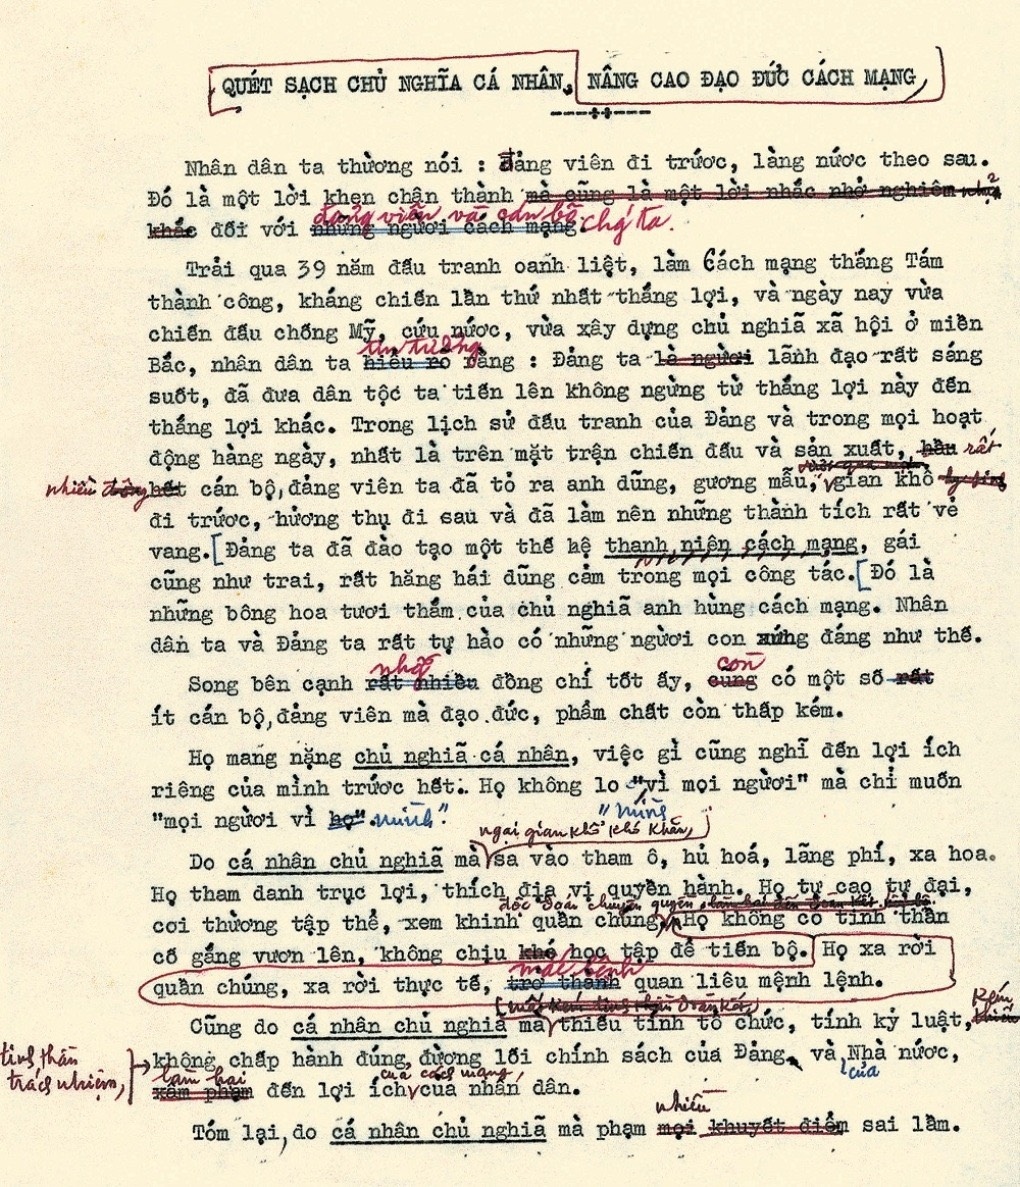 QUÉT SẠCH CHỦ NGHĨA CÁ NHÂN, NÂNG CAO ĐẠO ĐỨC CÁCH MẠNG
Nhân dân ta thường nói : đảng viên đi trước, làng nước theo sau.
Đó là một lời khen chân thành mà cũng là một lời nhắc nhở nghiêm
đảng viên và cán bộ
khắc đối với những người cách mạng. chúng ta.
Trải qua 39 năm đấu tranh oanh liệt, làm Cách mạng tháng Tám
thành công, kháng chiến lần thứ nhất thắng lợi, và ngày nay vừa
chiến đấu chống Mỹ, cứu nước, vừa xây dựng chủ nghĩa xã hội ở miền
tin tưởng
Bắc, nhân dân ta hiểu rõ rằng : Đảng ta là người lãnh đạo rất sáng
suốt, đã đưa dân tộc ta tiến lên không ngừng từ thắng lợi này đến
thắng lợi khác. Trong lịch sử đấu tranh của Đảng và trong mọi hoạt
động hàng ngày, nhất là trên mặt trận chiến đấu và sản xuất, hầu rất
nhiều hết cán bộ, đảng viên ta đã tỏ ra anh dũng, gương mẫu, gian khổ
đi trước, hưởng thụ đi sau và đã làm nên những thành tích rất vẻ
vang. [Đảng ta đã đào tạo một thế hệ thanh niên cách mạng, gái
cũng như trai, rất hăng hái dũng cảm trong mọi công tác. [Đó là
những bông hoa tươi thắm của chủ nghĩa anh hùng cách mạng. Nhân
dân ta và Đảng ta rất tự hào có những người con xứng đáng như thế.
những còn
Song bên cạnh rất nhiều đồng chí tốt ấy, cũng có một số rất
ít cán bộ, đảng viên mà đạo đức, phẩm chất còn thấp kém.
Họ mang nặng chủ nghĩa cá nhân, việc gì cũng nghĩ đến lợi ích
riêng của mình trước hết. Họ không lo "vì mọi người" mà chỉ muốn
"mọi người vì họ". mình".
ngại gian khổ khó khăn,
Do cá nhân chủ nghĩa mà sa vào tham ô, hủ hoá, lãng phí, xa hoa.
Họ tham danh trục lợi, thích địa vị quyền hành. Họ tự cao tự đại,
độc đoán chuyên quyền,
coi thường tập thể, xem khinh quần chúng, Họ không có tinh thần
cố gắng vươn lên, không chịu khó học tập để tiến bộ. Họ xa rời
mắc bệnh
quần chúng, xa rời thực tế, trở thành quan liêu mệnh lệnh.
Cũng do cá nhân chủ nghĩa mà thiếu tính tổ chức, tính kỷ luật, kém
tinh thần trách nhiệm, không chấp hành đúng đường lối chính sách của Đảng và của Nhà nước,
làm hại của cách mạng,
xâm phạm đến lợi ích của nhân dân.
nhiều
Tóm lại, do cá nhân chủ nghĩa mà phạm mọi khuyết điểm sai lầm.